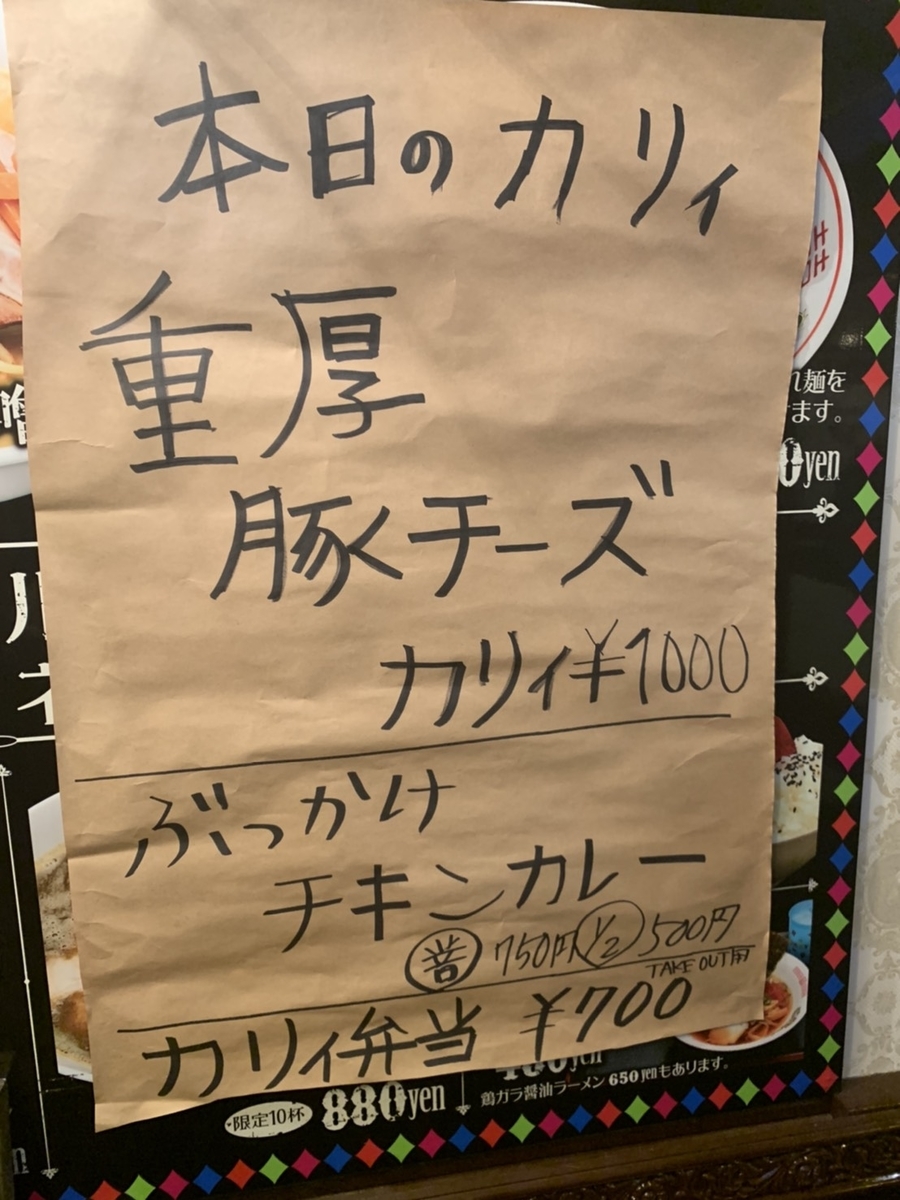 本日のカリィ
重厚
豚チーズ
カリィ¥1000
ぶっかけ
チキンカレー
普 750円 1/2 500円
TAKE OUT用
カリィ弁当 ¥700
れ麺を
ます。
0yen
限定10杯 880yen
鶏ガラ醤油ラーメン650yenもあります。